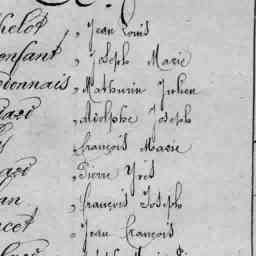 helot, Jean Louis
onfant, Joseph Marie
donnais, Mathurin Julien
, Adolphe Joseph
François Marie
, Pierre Yves
, François Joseph
cet, Jean François